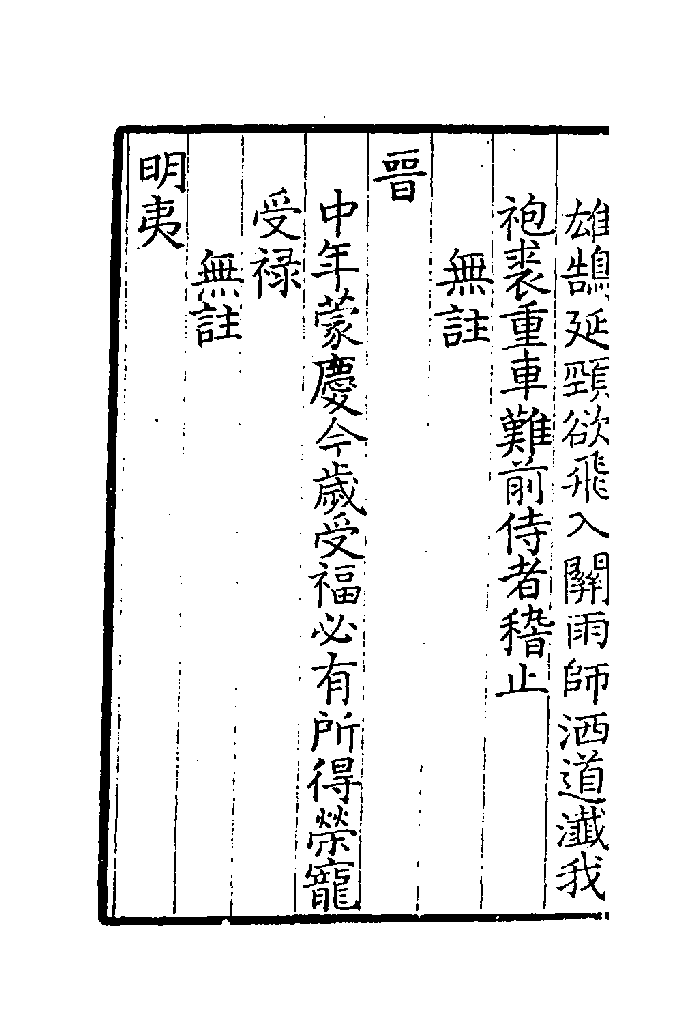 雄鵠延頸欲飛入關雨師洒道瀸我
袍裘重車難前侍者稽止
無註
晉
中年蒙慶今歲受福必有所得榮寵
受禄
無註
明夷